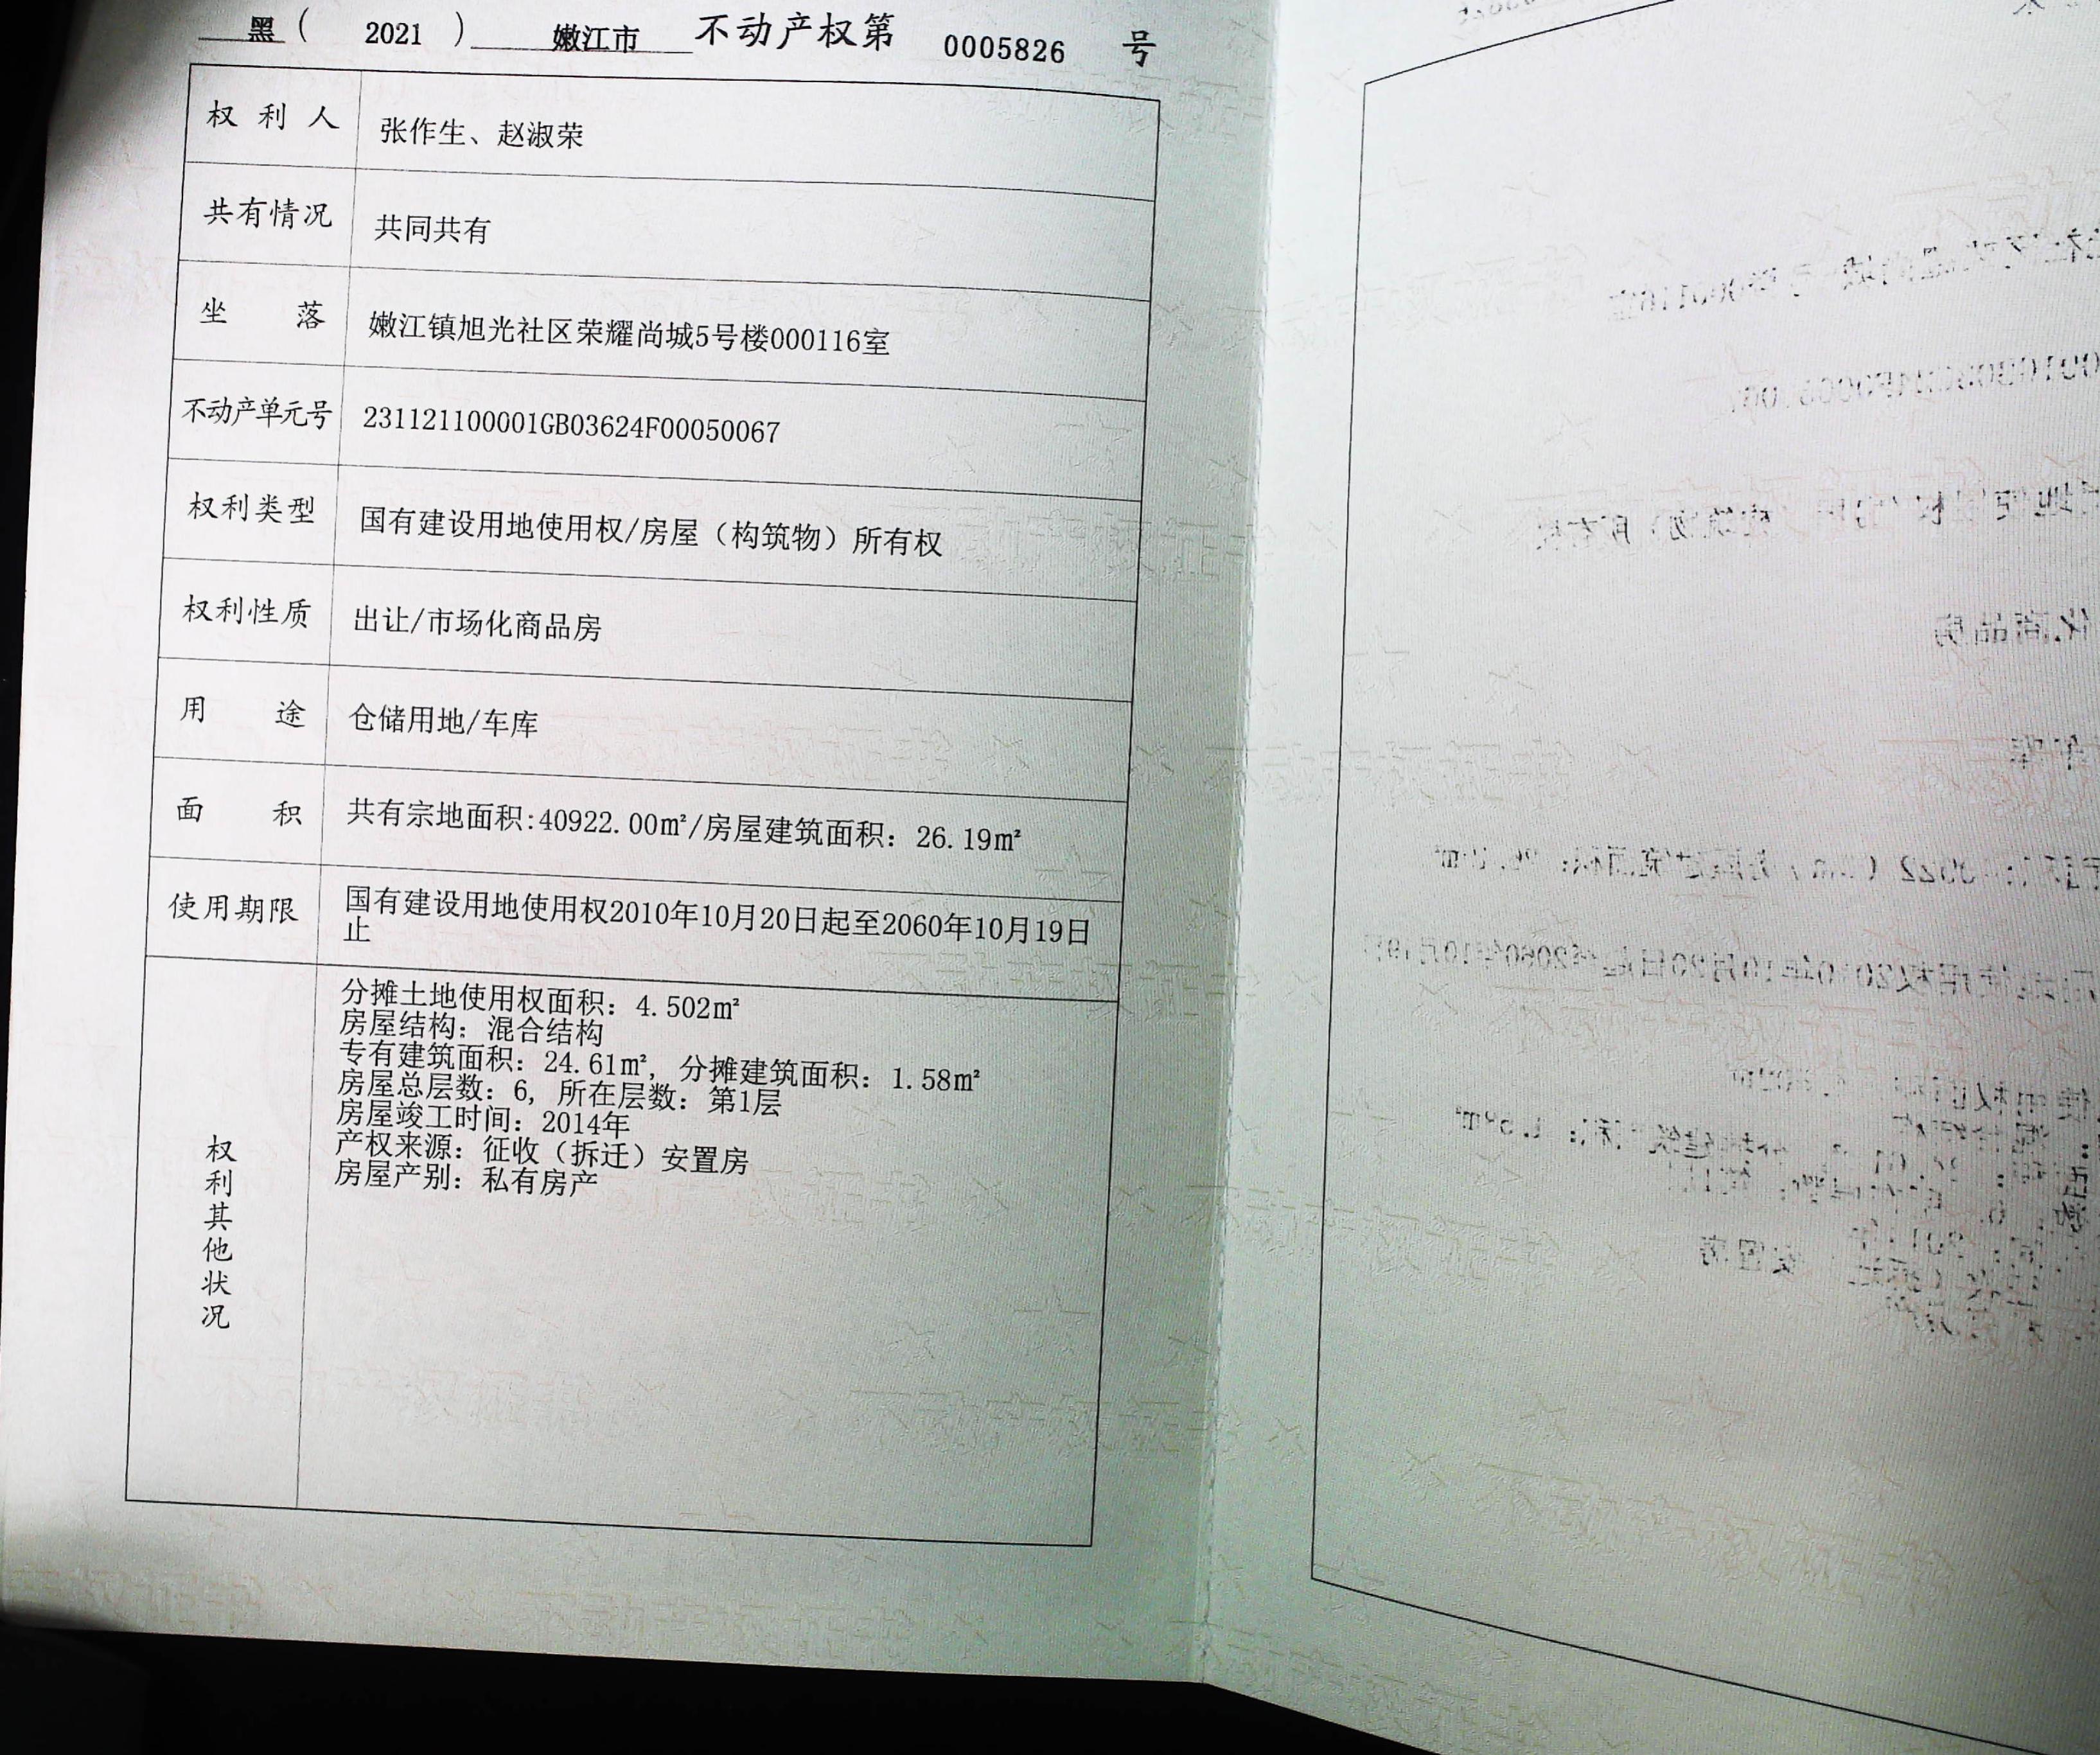 黑（ 2021 ） 嫩江市 不动产权第 0005826 号
权利人 张作生、赵淑荣
共有情况 共同共有
坐落 嫩江镇旭光社区荣耀尚城5号楼000116室
不动产单元号 231121100001GB03624F00050067
权利类型 国有建设用地使用权/房屋（构筑物）所有权
权利性质 出让/市场化商品房
用途 仓储用地/车库
面积 共有宗地面积:40922.00㎡/房屋建筑面积：26.19㎡
使用期限 国有建设用地使用权2010年10月20日起至2060年10月19日
止
权利其他状况
分摊土地使用权面积：4.502㎡
房屋结构：混合结构
专有建筑面积：24.61㎡，分摊建筑面积：1.58㎡
房屋总层数：6，所在层数：第1层
房屋竣工时间：2014年
产权来源：征收（拆迁）安置房
房屋产别：私有房产